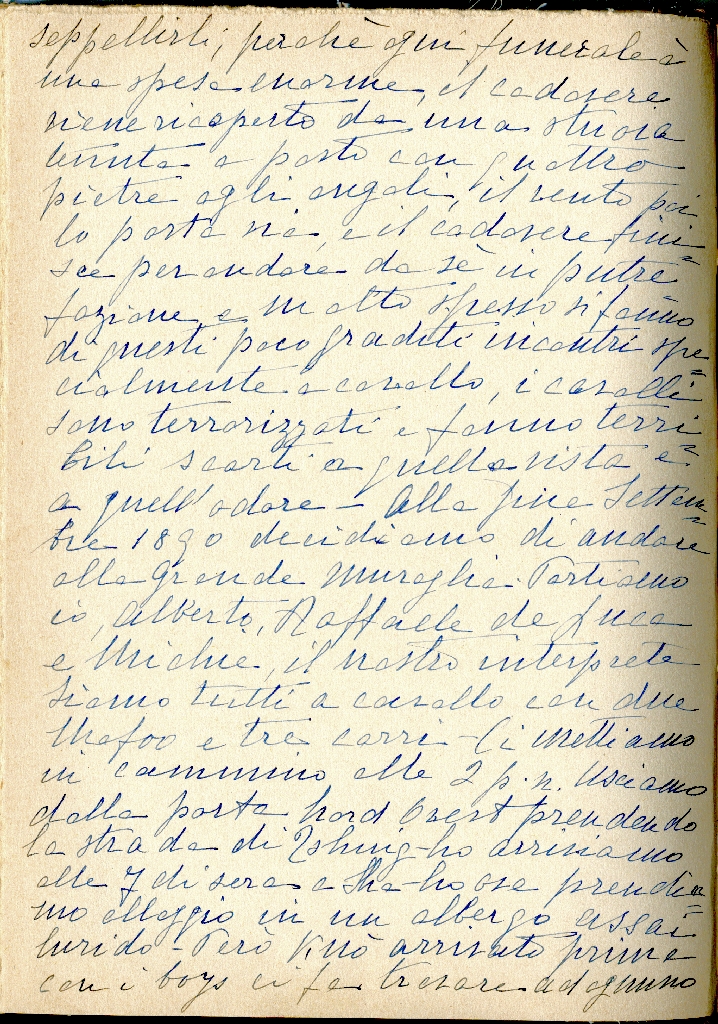 seppellirli, perchè ogni funerale è
una spesa enorme, il cadavere
viene ricoperto da una stuoia
tenuta a posto con quattro
pietre agli angoli, il vento poi
lo porta via, e il cadavere fini=
sce per andare da sè in putre
fazione e molto spesso si fanno
di questi poco graditi incontri spe=
cialmente a cavallo, i cavalli
sono terrorizzati e fanno terri=
bili scarti a quella vista e
a quell'odore - Alla fine Settem=
bre 1890 decidiamo di andare
alla Grande Muraglia. Partiamo
io, Alberto, Raffaele de Luca
e, il nostro interprete
Siamo tutti a cavallo con due
Mafoo e tre carri - Ci mettiamo
in cammino alle 2 p.m. Usciamo
dalla porta Nord Ovest prendendo
la strada di arriviamo
alle 7 di sera a Sha-ho ove prendia=
mo alloggio in un albergo assai
lurido - Però arrivato prima
con i boys ci fa trovare ad ognuno